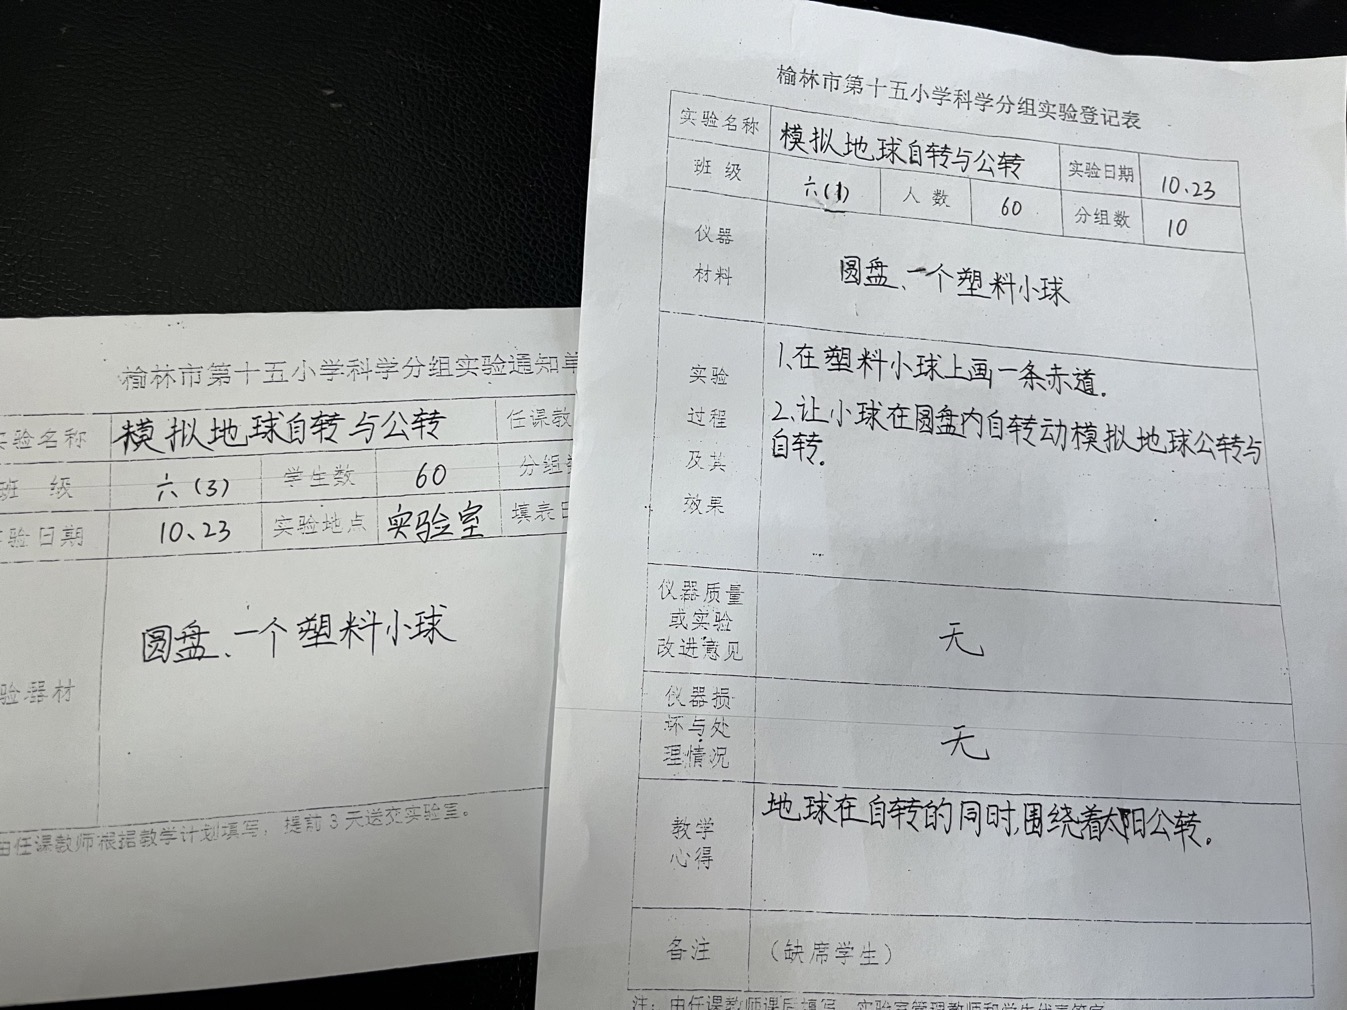 榆林市第十五小学科学分组实验通知单
实验名称 模拟地球自转与公转 任课教
班 级 六(3) 学生数 60 分组
验日期 10、23 实验地点 实验室 填表日
圆盘、一个塑料小球
验器材
由任课教师根据教学计划填写，提前3天送交实验室。
榆林市第十五小学科学分组实验登记表
实验名称 模拟地球自转与公转 实验日期 10、23
班 级 六(1) 人 数 60 分组数 10
仪器
材料
圆盘、一个塑料小球
实验
过程
及其
效果
1、在塑料小球上画一条赤道.
2、让小球在圆盘内自转动模拟地球公转与
自转.
仪器质量
或实验
改进意见
无
仪器损
坏与处
理情况
无
教学
心得
地球在自转的同时,围绕着太阳公转。
备注 （缺席学生）
注：由任课教师课后填写，实验室管理教师和学生代表签字